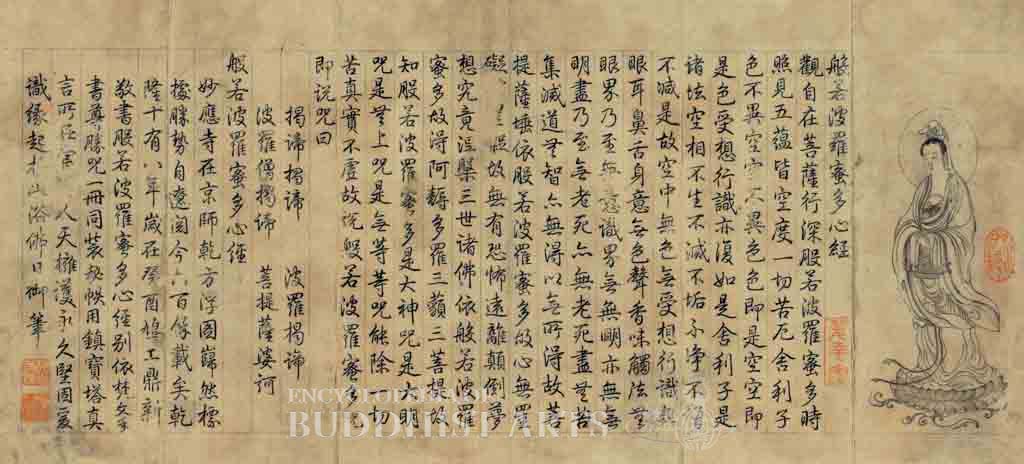 般若波羅蜜多心經
觀自在菩薩行深般若波羅蜜多時
照見五蘊皆空度一切苦厄舍利子
色不異空空不異色色即是空空即
是色受想行識亦復如是舍利子是
諸法空相不生不滅不垢不淨不增
不減是故空中無色無受想行識無
眼耳鼻舌身意無色聲香味觸法無
眼界乃至無意識界無無明亦無無
明盡乃至無老死亦無老死盡無苦
集滅道無智亦無得以無所得故菩
提薩埵依般若波羅蜜多故心無罣
礙故無有恐怖遠離顛倒夢
想究竟涅槃三世諸佛依般若波羅
蜜多故得阿耨多羅三藐三菩提故
知般若波羅蜜多是大神咒是大明
咒是無上咒是無等等咒能除一切
苦真實不虛故說般若波羅蜜多咒
即說咒曰
揭諦揭諦 波羅揭諦
波羅僧揭諦 菩提薩婆訶
般若波羅蜜多心經
妙應寺在京師乾方浮圖巋然標
據勝勢自遼閱今六百餘載矣乾
隆十有八年歲在癸酉鳩工鼎新
敬書般若波羅蜜多心經別依梵文
書尊勝咒一冊同裝秘帙用鎮寶塔真
言所在 人天擁護永久堅固爰
識緣起 浴佛日御筆
ENCYCLOPEDIA OF
BUDDHIST ARTS